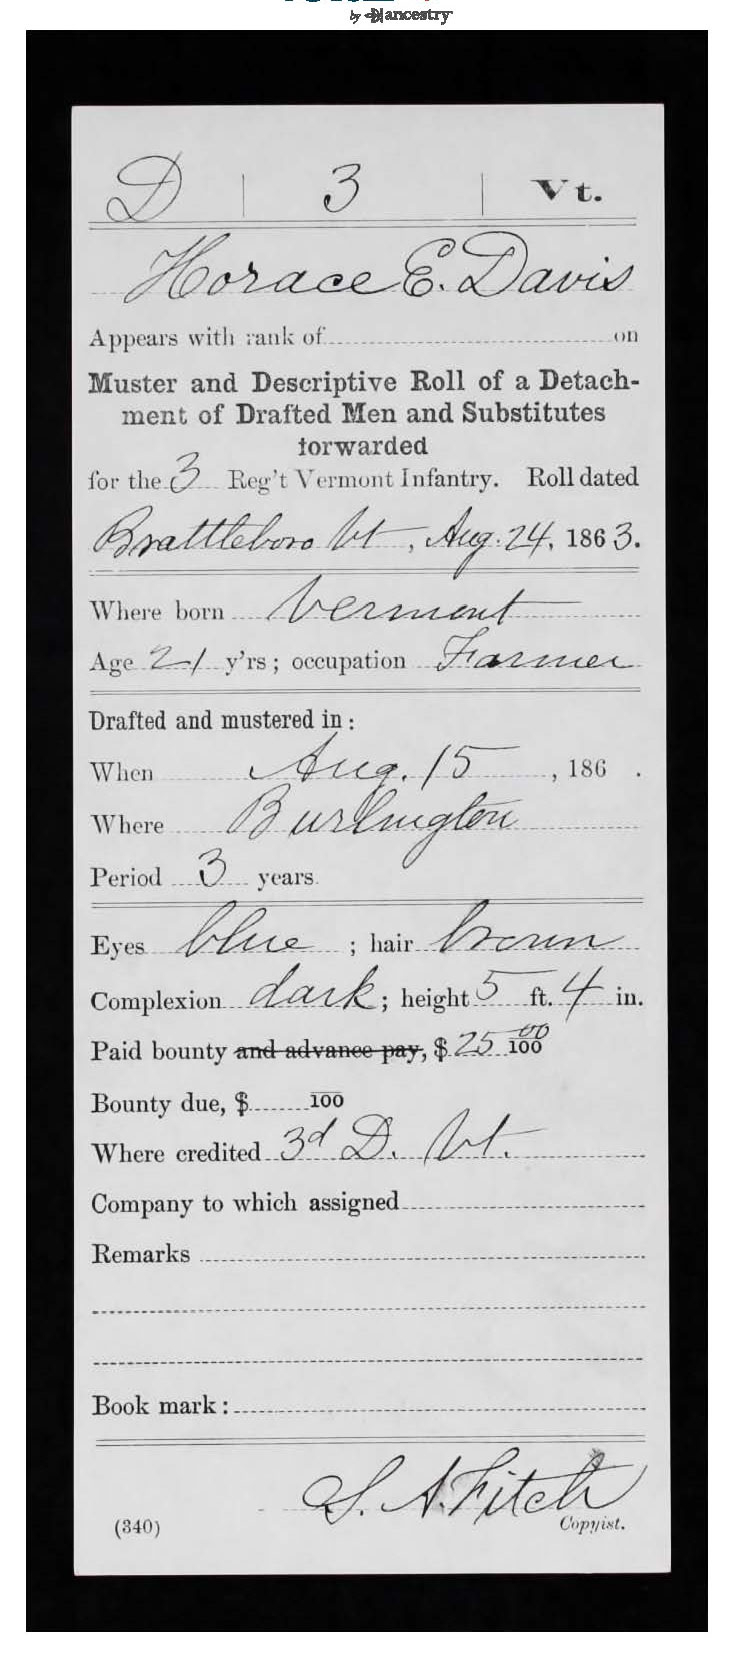 by ancestry
D | 3 | Vt.
Horace E. Davis
Appears with rank of on
Muster and Descriptive Roll of a Detach-
ment of Drafted Men and Substitutes
forwarded
for the 3 Reg't Vermont Infantry. Roll dated
Brattleboro Vt, Aug. 24, 1863.
Where born Vermont
Age 21 y'rs; occupation Farmer
Drafted and mustered in:
When Aug. 15, 186 .
Where Burlington
Period 3 years.
Eyes blue; hair brown
Complexion dark; height 5 ft. 4 in.
Paid bounty and advance pay, $25 00/100
Bounty due, $ /100
Where credited 3d D. Vt.
Company to which assigned
Remarks
Book mark:
S. A. Fitch
(340) Copyist.